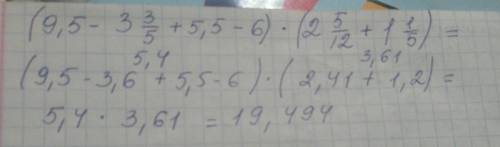 (9,5 - 3 3/5 + 5,5 - 6) · (2 5/12 + 1 1/5) =
5,4 3,61
(9,5 - 3,6 + 5,5 - 6) · (2,41 + 1,2) =
5,4 · 3,61 = 19,494